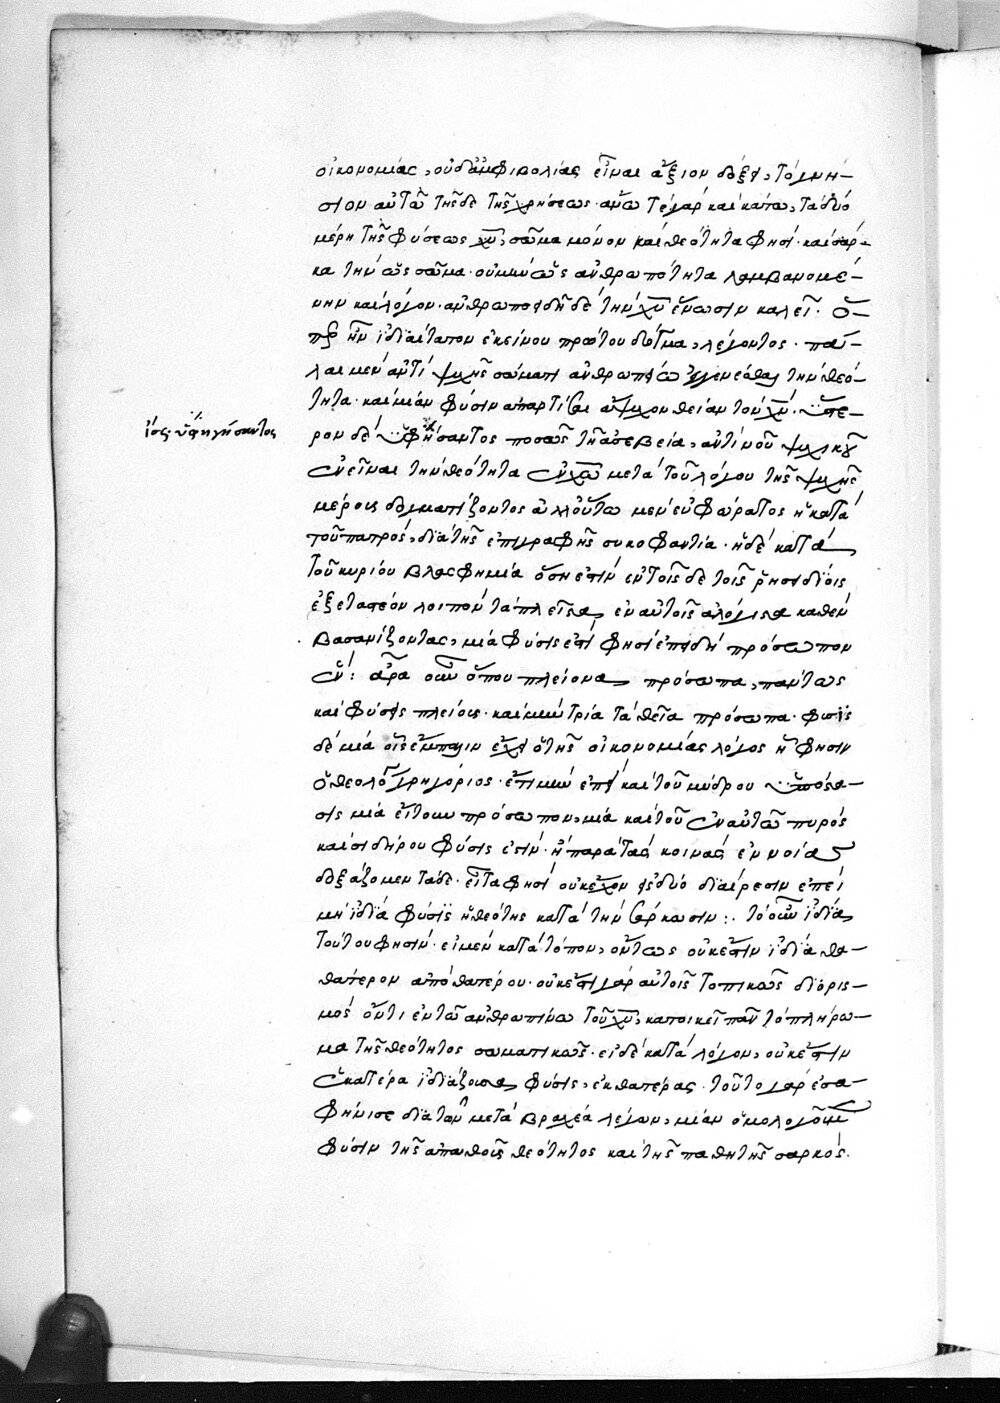 οἰκονομίας, οὐδ' ἀμφιβολίας εἶναι ἄξιον δόξει, τὸ γνή-
σιον αὐτῶ τῆσδε τῆς χρήσεως· ἄνω τὲ γὰρ καὶ κάτω, τὰ δύο
μέρη τῆς φύσεως χυ, σῶμα μόνον καὶ θεότητα φησί· καὶ σάρ-
κα τὴν ὡς σῶμα· οὐ μὴν ὡς ἀνθρωπότητα λαμβανομέ-
νην καὶ λόγον· ἀνθρωποειδῆ δὲ τὴν χυ ἕνωσιν καλεῖ· ὅ-
περ ἦν ἰδιαίτατον ἐκείνου πρώτου δόγμα, λέγοντος· πα-
λαι μὲν ἀντὶ ψυχῆς σώματι ἀνθρωπείω ἐγγενέσθαι τὴν θεό-
τητα· καὶ μίαν φύσιν ἀπαρτίσαι ἄψυχον θείαν τὸν χν· ὕστε-
ρον δὲ ὑφήσαντος ποσῶς τῆ ἀσεβεία, ἀντὶ νοῦ ψυχικοῦ
ἴσως· ὑφηγήσαντος
συνεῖναι τὴν θεότητα ἐν χω μετὰ τοῦ λόγου τῆς ψυχῆς
μέρους δογματίζοντος ἀλλ' οὕτω μὲν εὐφώρατος ἡ κατὰ
τοῦ πατρός, διὰ τῆς ἐπιγραφῆς συκοφαντία· ἡ δὲ κατὰ
τοῦ κυρίου βλασφημία ὅση ἐστὶν ἐν τοῖσδε τοῖς ῥησιδίοις
ἐξεταστέον λοιπὸν τὰ πλεῖστα ἐν αὐτοῖς ἀλόγιστα καθ' ἓν
βασανίζοντας, μία φύσις ἐστί φησι ἐπειδὴ πρόσωπον
ἕν: ἆρα οὖν ὅπου πλείονα πρόσωπα, πάντως
καὶ φύσεις πλείους· καὶ μὴν τρία τὰ θεῖα πρόσωπα· φύσις
δὲ μία οἷς ἔμπαλιν ἔχει ὁ τῆς οἰκονομίας λόγος ἧ φησιν
ὁ θεολόγος γρηγόριος· ἔτι μὴν ἐπεὶ καὶ τοῦ μύδρου ὑπόστα-
σις μία ἤτοι πρόσωπον, μία καὶ τοῦ ἐν αὐτῶ πυρός
καὶ σιδήρου φύσις ἐστίν· ἢ παρὰ τὰς κοινὰς ἐννοίας
δοξάζομεν τάδε· εἶτα φησί οὐκ ἔχον εἰς δύο διαίρεσιν ἐπεὶ
μὴ ἰδία φύσις ἡ θεότης κατὰ τὴν σάρκωσιν:· τὸ οὖν ἰδία
τούτου φησίν· εἰ μὲν κατὰ τόπον, ὄντως οὐκ ἔστιν ἰδία θα-
θατέρου ἀπὸ θατέρου· οὐκ ἔστι γὰρ αὐτοῖς τοπικῶς διορισ-
μός ὅτι ἐν τῶ ἀνθρωπίνω τοῦ χυ, κατοικεῖ πᾶν τὸ πλήρω-
μα τῆς θεότητος σωματικῶς· εἰ δὲ κατὰ λόγον, οὐκ ἔστιν
ἑκατέρα ἰδιάζουσα φύσις, ἐκ θατέρας· τοῦτο γὰρ ἐσα-
φήνισε διὰ τῶν μετὰ βραχέα λέγων, μίαν ὁμολογοῦμεν
φύσιν τῆς ἀπαθοῦς θεότητος καὶ τῆς παθητῆς σαρκός.